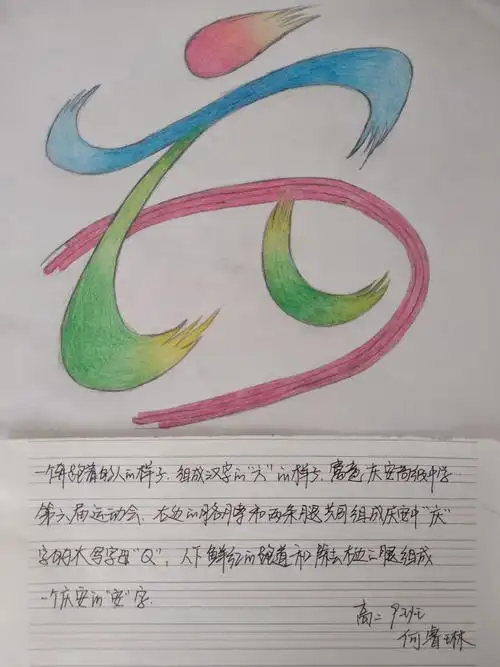 一个奔跑着的人的样子，组成汉字的“六”的样子，寓意庆安高级中学
第六届运动会，右边的胳膊和两条腿共同组成庆安中“庆”
字的大写字母“Q”，人下鲜红的跑道和除去右边的腿组成
一个庆安的“安”字．
高二9班
何睿琳